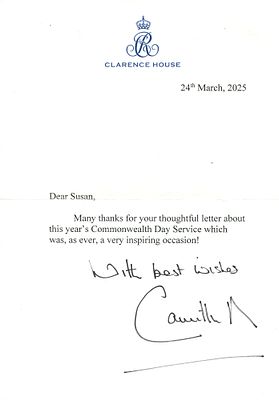 CLARENCE HOUSE
24th March, 2025
Dear Susan,
Many thanks for your thoughtful letter about
this year's Commonwealth Day Service which
was, as ever, a very inspiring occasion!
With best wishes
Camilla R